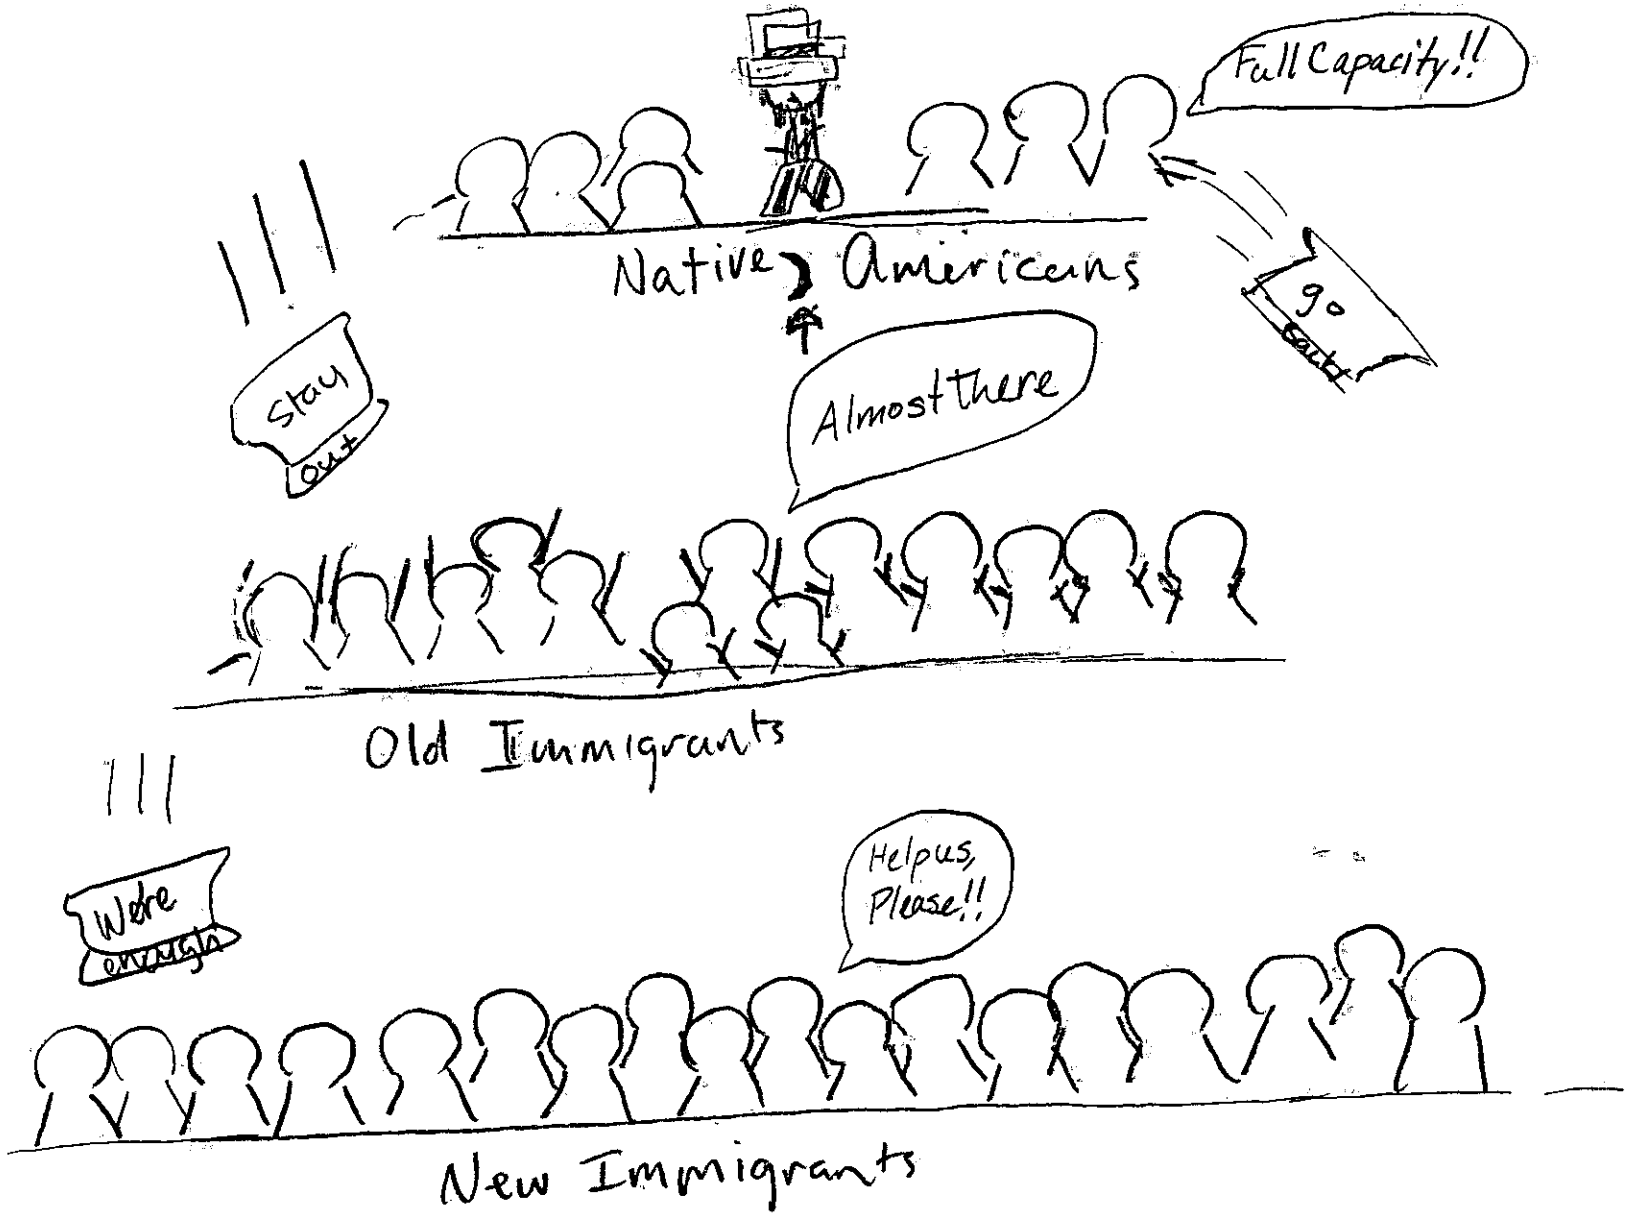 Full Capacity!!
Native Americans
go
back
Stay
out
Almost there
Old Immigrants
We're
enough
Help us,
Please!!
New Immigrants